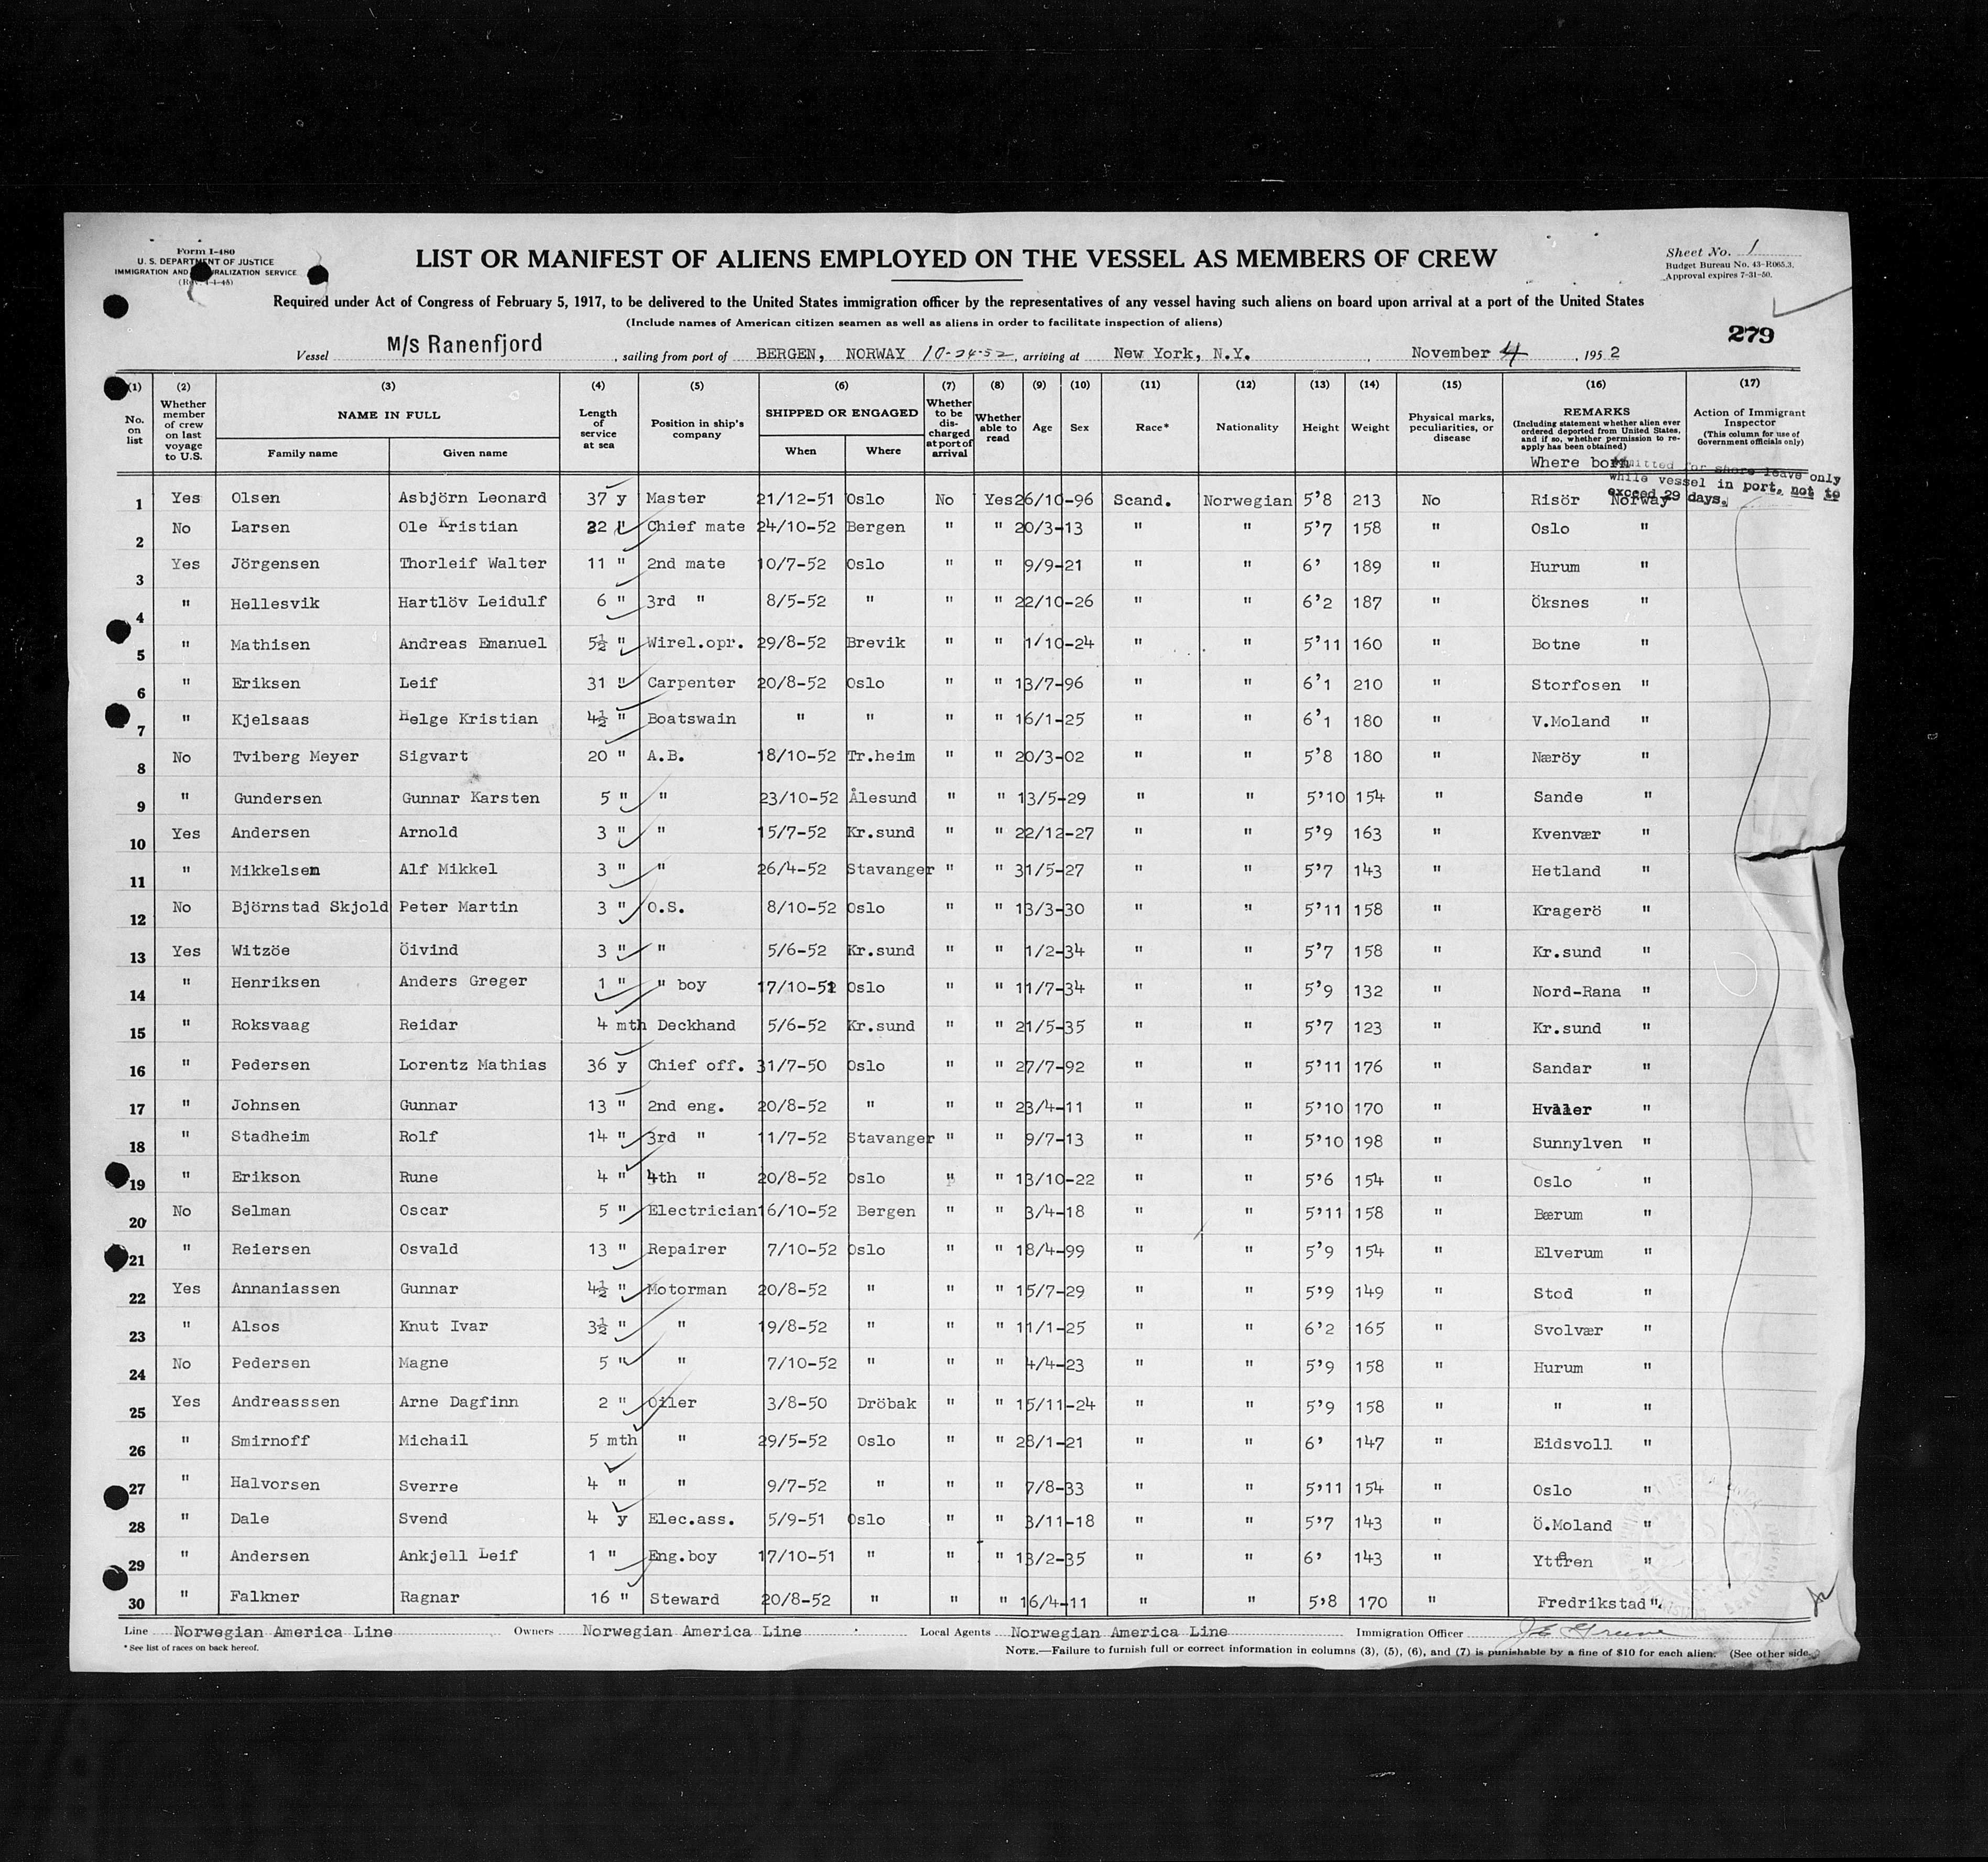 Form I-480
U. S. DEPARTMENT OF JUSTICE
IMMIGRATION AND NATURALIZATION SERVICE
LIST OR MANIFEST OF ALIENS EMPLOYED ON THE VESSEL AS MEMBERS OF CREW
Sheet No. 1
Budget Bureau No. 43-R065.3.
Approval expires 7-31-50.
Required under Act of Congress of February 5, 1917, to be delivered to the United States immigration officer by the representatives of any vessel having such aliens on board upon arrival at a port of the United States
(Include names of American citizen seamen as well as aliens in order to facilitate inspection of aliens)
279
Vessel M/s Ranenfjord, sailing from port of BERGEN, NORWAY 10-24-52, arriving at New York, N.Y., November 4, 1952
(1) (2) (3) (4) (5) (6) (7) (8) (9) (10) (11) (12) (13) (14) (15) (16) (17)
No. on list
Whether member of crew on last voyage to U.S.
NAME IN FULL
Family name
Given name
Length of service at sea
Position in ship's company
SHIPPED OR ENGAGED
When
Where
Whether to be discharged at port of arrival
Whether able to read
Age
Sex
Race*
Nationality
Height
Weight
Physical marks, peculiarities, or disease
REMARKS
(Including statement whether alien ever ordered deported from United States, and if so, whether permission to reapply has been obtained)
Where born
Action of Immigrant Inspector
(This column for use of Government officials only)
Admitted for shore leave only
while vessel in port, not to
exceed 29 days.
1 Yes Olsen Asbjörn Leonard 37 y Master 21/12-51 Oslo No Yes 26/10-96 Scand. Norwegian 5'8 213 No Risör Norway
2 No Larsen Ole Kristian 22 " Chief mate 24/10-52 Bergen " " 20/3-13 " " 5'7 158 " Oslo "
3 Yes Jörgensen Thorleif Walter 11 " 2nd mate 10/7-52 Oslo " " 9/9-21 " " 6' 189 " Hurum "
4 " Hellesvik Hartlöv Leidulf 6 " 3rd " 8/5-52 " " " 22/10-26 " " 6'2 187 " Öksnes "
5 " Mathisen Andreas Emanuel 5½ " Wirel.opr. 29/8-52 Brevik " " 1/10-24 " " 5'11 160 " Botne "
6 " Eriksen Leif 31 " Carpenter 20/8-52 Oslo " " 13/7-96 " " 6'1 210 " Storfosen "
7 " Kjelsaas Helge Kristian 4½ " Boatswain " " " " 16/1-25 " " 6'1 180 " V.Moland "
8 No Tviberg Meyer Sigvart 20 " A.B. 18/10-52 Tr.heim " " 20/3-02 " " 5'8 180 " Næröy "
9 " Gundersen Gunnar Karsten 5 " " 23/10-52 Ålesund " " 13/5-29 " " 5'10 154 " Sande "
10 Yes Andersen Arnold 3 " " 15/7-52 Kr.sund " " 22/12-27 " " 5'9 163 " Kvenvær "
11 " Mikkelsen Alf Mikkel 3 " " 26/4-52 Stavanger " " 31/5-27 " " 5'7 143 " Hetland "
12 No Björnstad Skjold Peter Martin 3 " O.S. 8/10-52 Oslo " " 13/3-30 " " 5'11 158 " Kragerö "
13 Yes Witzöe Öivind 3 " " 5/6-52 Kr.sund " " 1/2-34 " " 5'7 158 " Kr.sund "
14 " Henriksen Anders Greger 1 " " boy 17/10-51 Oslo " " 11/7-34 " " 5'9 132 " Nord-Rana "
15 " Roksvaag Reidar 4 mth Deckhand 5/6-52 Kr.sund " " 21/5-35 " " 5'7 123 " Kr.sund "
16 " Pedersen Lorentz Mathias 36 y Chief off. 31/7-50 Oslo " " 27/7-92 " " 5'11 176 " Sandar "
17 " Johnsen Gunnar 13 " 2nd eng. 20/8-52 " " " 23/4-11 " " 5'10 170 " Hvaler "
18 " Stadheim Rolf 14 " 3rd " 11/7-52 Stavanger " " 9/7-13 " " 5'10 198 " Sunnylven "
19 " Erikson Rune 4 " 4th " 20/8-52 Oslo " " 13/10-22 " " 5'6 154 " Oslo "
20 No Selman Oscar 5 " Electrician 16/10-52 Bergen " " 3/4-18 " " 5'11 158 " Bærum "
21 " Reiersen Osvald 13 " Repairer 7/10-52 Oslo " " 18/4-99 " " 5'9 154 " Elverum "
22 Yes Annaniassen Gunnar 4½ " Motorman 20/8-52 " " " 15/7-29 " " 5'9 149 " Stod "
23 " Alsos Knut Ivar 3½ " " 19/8-52 " " " 11/1-25 " " 6'2 165 " Svolvær "
24 No Pedersen Magne 5 " " 7/10-52 " " " 4/4-23 " " 5'9 158 " Hurum "
25 Yes Andreasssen Arne Dagfinn 2 " Oiler 3/8-50 Dröbak " " 15/11-24 " " 5'9 158 " " "
26 " Smirnoff Michail 5 mth " 29/5-52 Oslo " " 28/1-21 " " 6' 147 " Eidsvoll "
27 " Halvorsen Sverre 4 " " 9/7-52 " " " 7/8-33 " " 5'11 154 " Oslo "
28 " Dale Svend 4 y Elec.ass. 5/9-51 Oslo " " 3/11-18 " " 5'7 143 " Ö.Moland "
29 " Andersen Ankjell Leif 1 " Eng.boy 17/10-51 " " " 13/2-35 " " 6' 143 " Ytteren "
30 " Falkner Ragnar 16 " Steward 20/8-52 " " " 16/4-11 " " 5'8 170 " Fredrikstad "
Line Norwegian America Line Owners Norwegian America Line Local Agents Norwegian America Line Immigration Officer
* See list of races on back hereof.
NOTE.—Failure to furnish full or correct information in columns (3), (5), (6), and (7) is punishable by a fine of $10 for each alien. (See other side.)